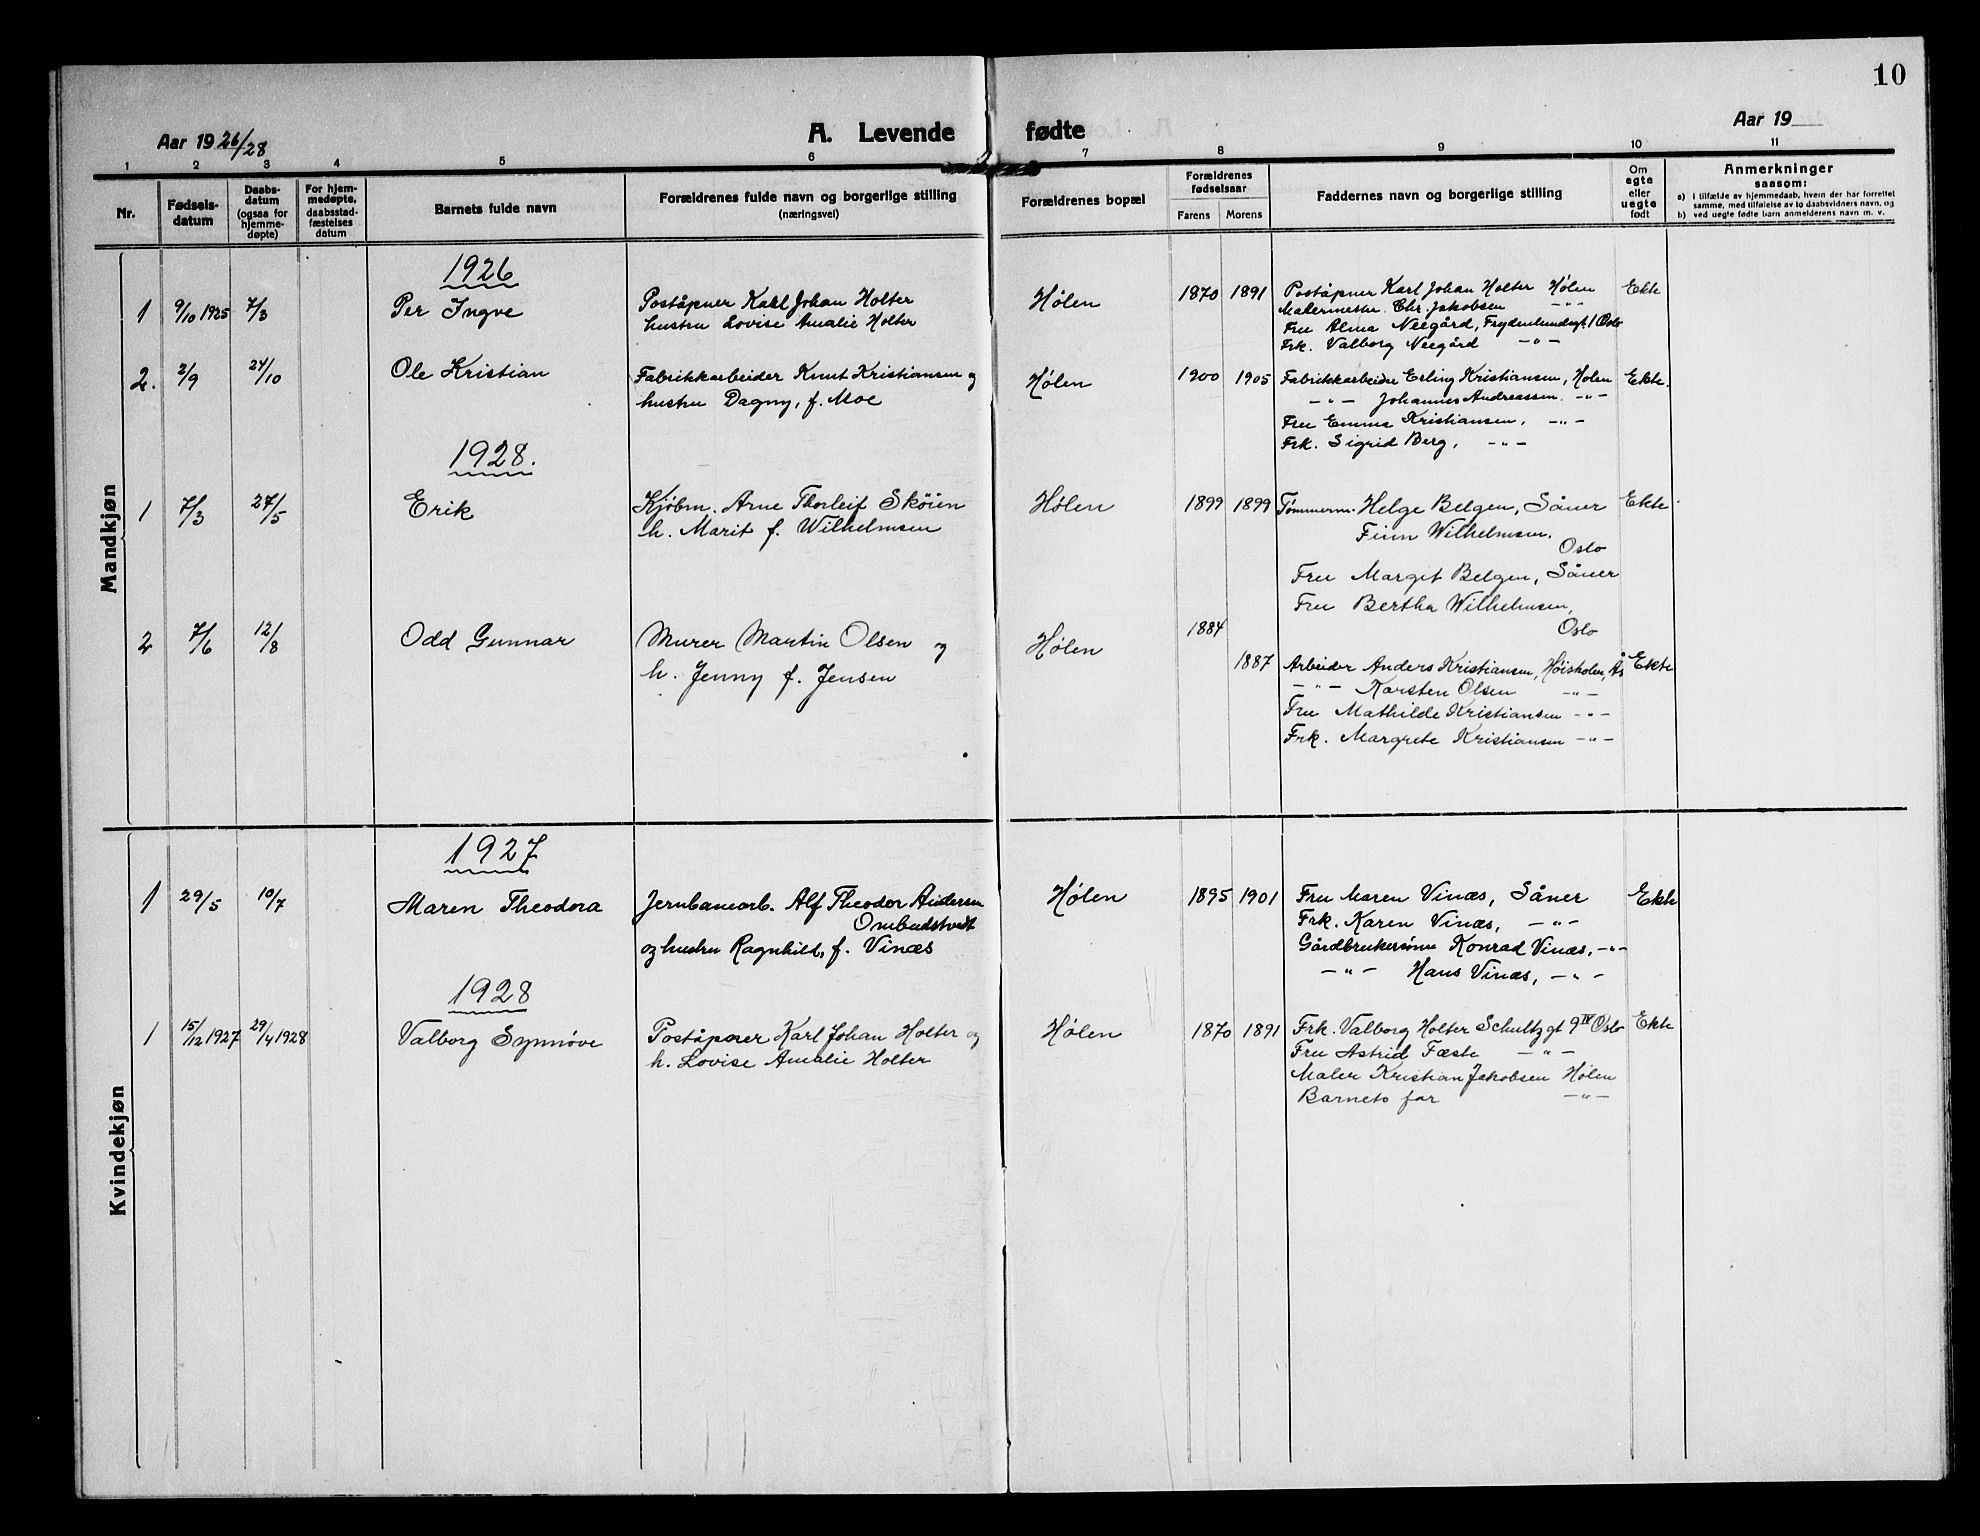 10
Aar 1926/28
A. Levende fødte
Aar 19
1 2 3 4 5 6 7 8 9 10 11
Nr.
Fødsels-
datum
Daabs-
datum
(ogsaa for
hjemme-
døpte)
For hjem-
medøpte,
daabsstad-
fæstelses
datum
Barnets fulde navn
Forældrenes fulde navn og borgerlige stilling
(næringsvei)
Forældrenes bopæl
Forældrenes
fødselsaar
Farens Morens
Faddernes navn og borgerlige stilling
Om
egte
eller
uegte
født
Anmerkninger
saasom:
a) i tilfælde av hjemmedaab, hvem der har forrettet
samme, med tilføielse av to daabsvidners navn, og
b) ved uegte fødte barn anmelderens navn m. v.
Mandkjøn
1926
1 9/10 1925 7/3 Per Ingve
Poståpner Karl Johan Holter
hustru Lovise Amalie Holter
Hølen 1870 1891
Poståpner Karl Johan Holter Hølen
Malermester Chr. Jakobsen -"-
Fru Alma Neegård, Frydenlundsgt. 1 Oslo
Frk. Valborg Neegård -"-
Ekte
2. 2/9 24/10 Ole Kristian
Fabrikkarbeider Knut Kristiansen og
hustru Dagny, f. Moe
Hølen 1900 1905
Fabrikkarbeider Erling Kristiansen, Hølen
-"- Johannes Andreassen. -"-
Fru Emma Kristiansen, -"-
Frk. Sigrid Berg, -"-
Ekte.
1928.
1 7/3 27/5 Erik
Kjøbm. Arne Thorleif Skøien
h. Marit f. Wilhelmsen
Hølen 1899 1899
Tømmerm. Helge Belgen, Såner
Finn Wilhelmsen,
Oslo
Fru Margit Belgen, Såner
Fru Bertha Wilhelmsen,
Oslo
Ekte
2 7/6 12/8 Odd Gunnar
Murer Martin Olsen og
h. Jenny f. Jensen
Hølen 1884 1887
Arbeider Anders Kristiansen, Høiskolen, Ås
-"- Karsten Olsen -"-
Fru Mathilde Kristiansen -"-
Frk. Margrete Kristiansen -"-
Ekte
Kvindekjøn
1927
1 29/5 10/7 Maren Theodora
Jernbanearb. Alf Theodor Andersen
Ombudstvedt
og hustru Ragnhild, f. Vinæs
Hølen 1895 1901
Fru Maren Vinæs, Såner
Frk. Karen Vinæs, -"-
Gårdbrukersønn Konrad Vinæs, -"-
-"- Hans Vinæs, -"-
Ekte
1928
1 15/12 1927 29/4 1928 Valborg Synnøve
Poståpner Karl Johan Holter og
h. Lovise Amalie Holter
Hølen 1870 1891
Frk. Valborg Holter Schultzgt 9 IV Oslo
Fru Astrid Fæste -"-
Maler Kristian Jakobsen Hølen
Barnets far -"-
Ekte